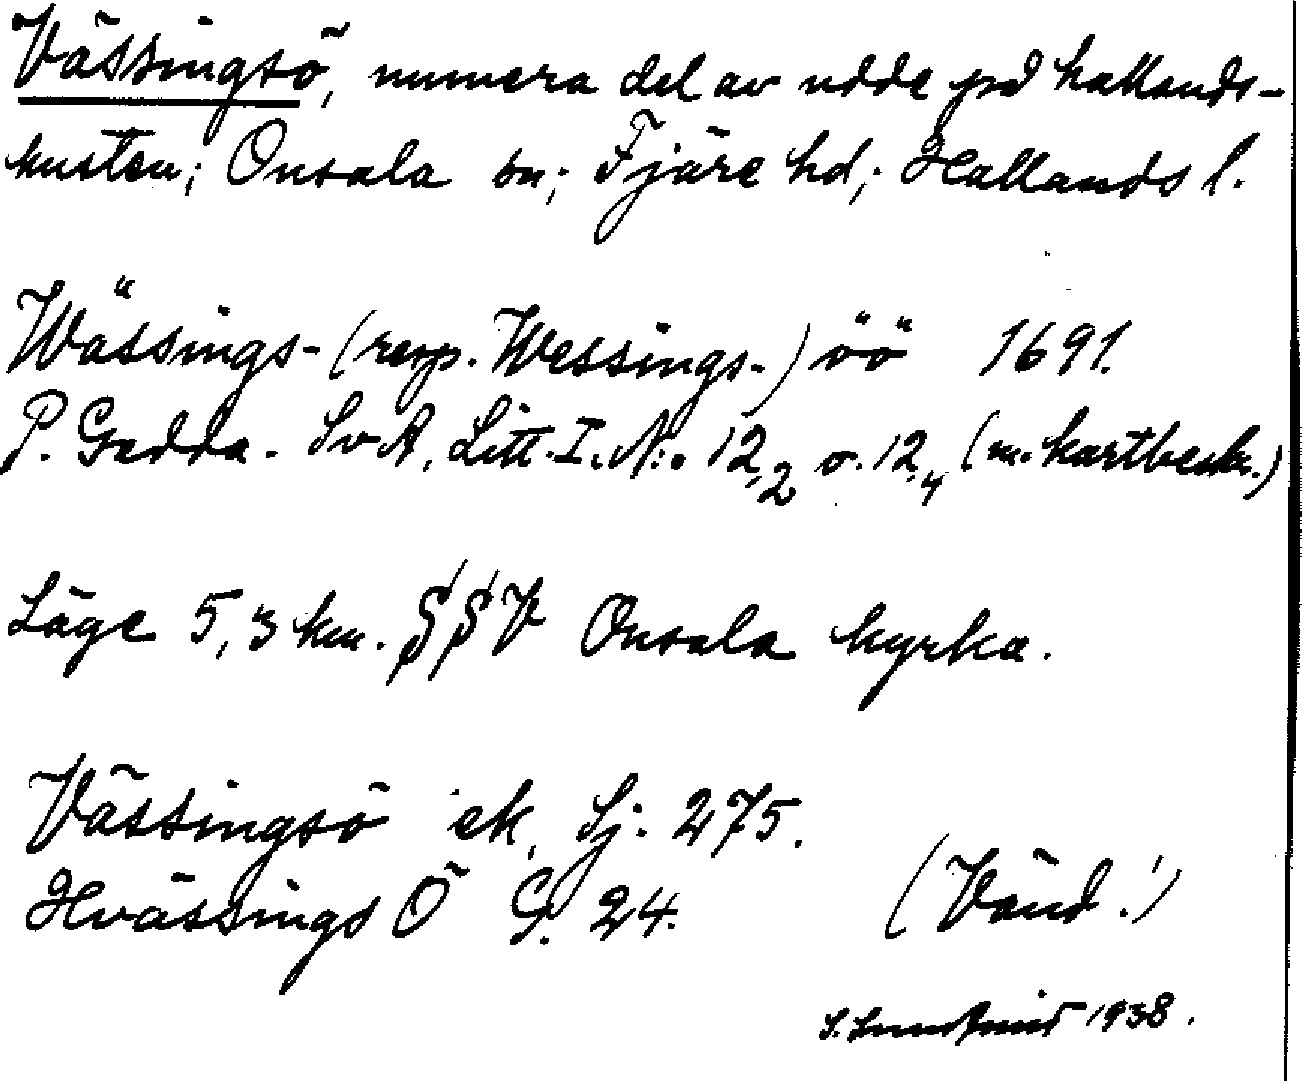 Vässingsö, numera del av udde på hallands-
kusten; Onsala sn; Fjäre hd; Hallands l.
Wässings- (resp. Wessings-) öö 1691.
P. Gedda. SvA, Litt. I. No. 12,2 o. 12,4 (m. kartbeskr.)
Läge 5,3 km. SSV Onsala kyrka.
Vässingsö ek. Sj. 275.
Hvässings Ö G. 24.
(Vänd!)
1938.